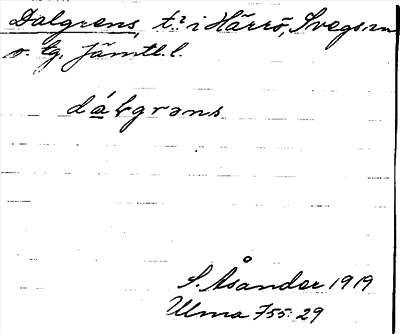 Dalgrens, t? i Härrö, Svegs sn
o. tg. Jämtl. l.
dálgrəns
S. Åsander 1919
Ulma 755:29